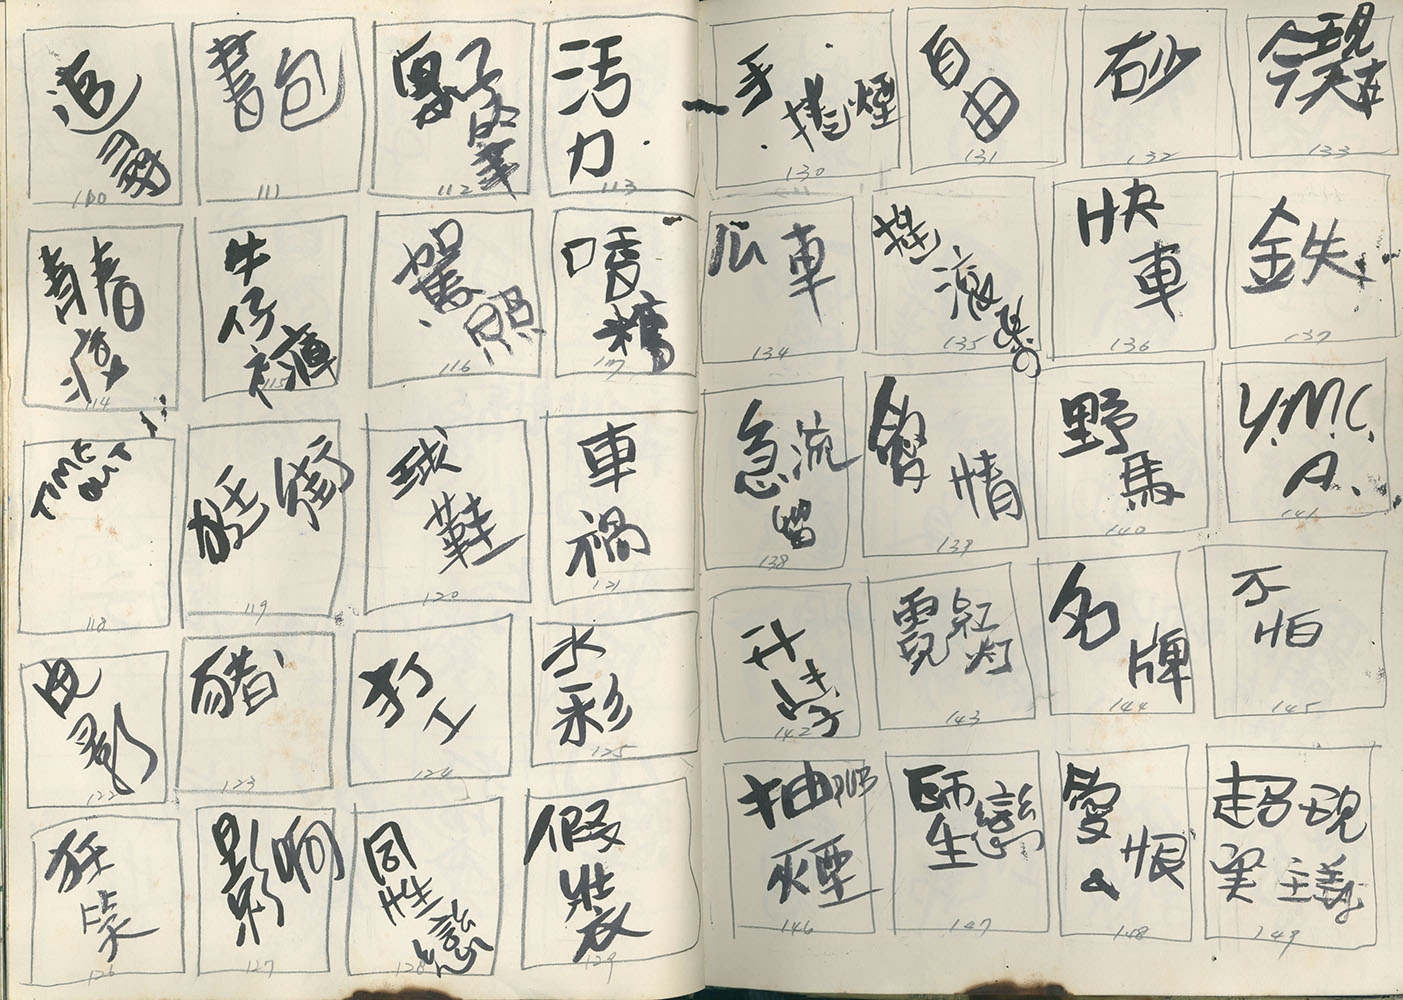 追尋
110
書包
111
112
活力
113
手捲煙
130
自由
131
砂
132
今天現在
133
青春痘
114
牛仔褲
115
駕照
116
口香糖
117
瓜車
134
搖滾樂
135
快車
136
鉄
137
TIME OUT
118
狂街
119
球鞋
120
車禍
121
急流
138
愛情
139
野馬
140
Y.M.C.A.
141
电影
122
豬
123
打工
124
水彩
125
升學
142
霓紅灯
143
名牌
144
不怕
145
狂笑
126
影响
127
同性戀
128
假裝
129
抽煙 PUB
146
師生戀
147
愛&恨
148
超現實主義
149